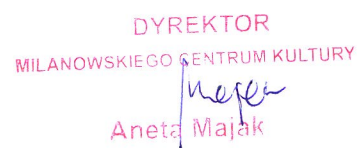 DYREKTOR
MILANOWSKIEGO CENTRUM KULTURY
Aneta Majak